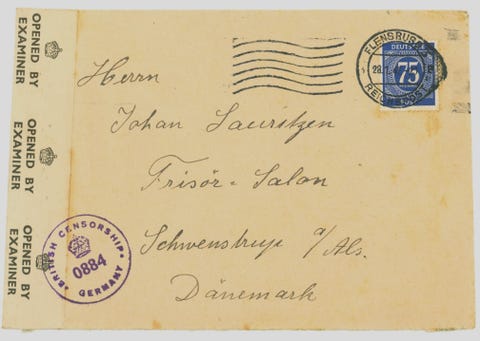 OPENED BY
EXAMINER
OPENED BY
EXAMINER
OPENED BY
EXAMINER
FLENSBURG
28.
DEUTSCHE
75
Herrn
Johan Lauritzen
Frisör-Salon
Schwenstrup a/Als.
Dänemark
BRITISH CENSORSHIP
0884
GERMANY